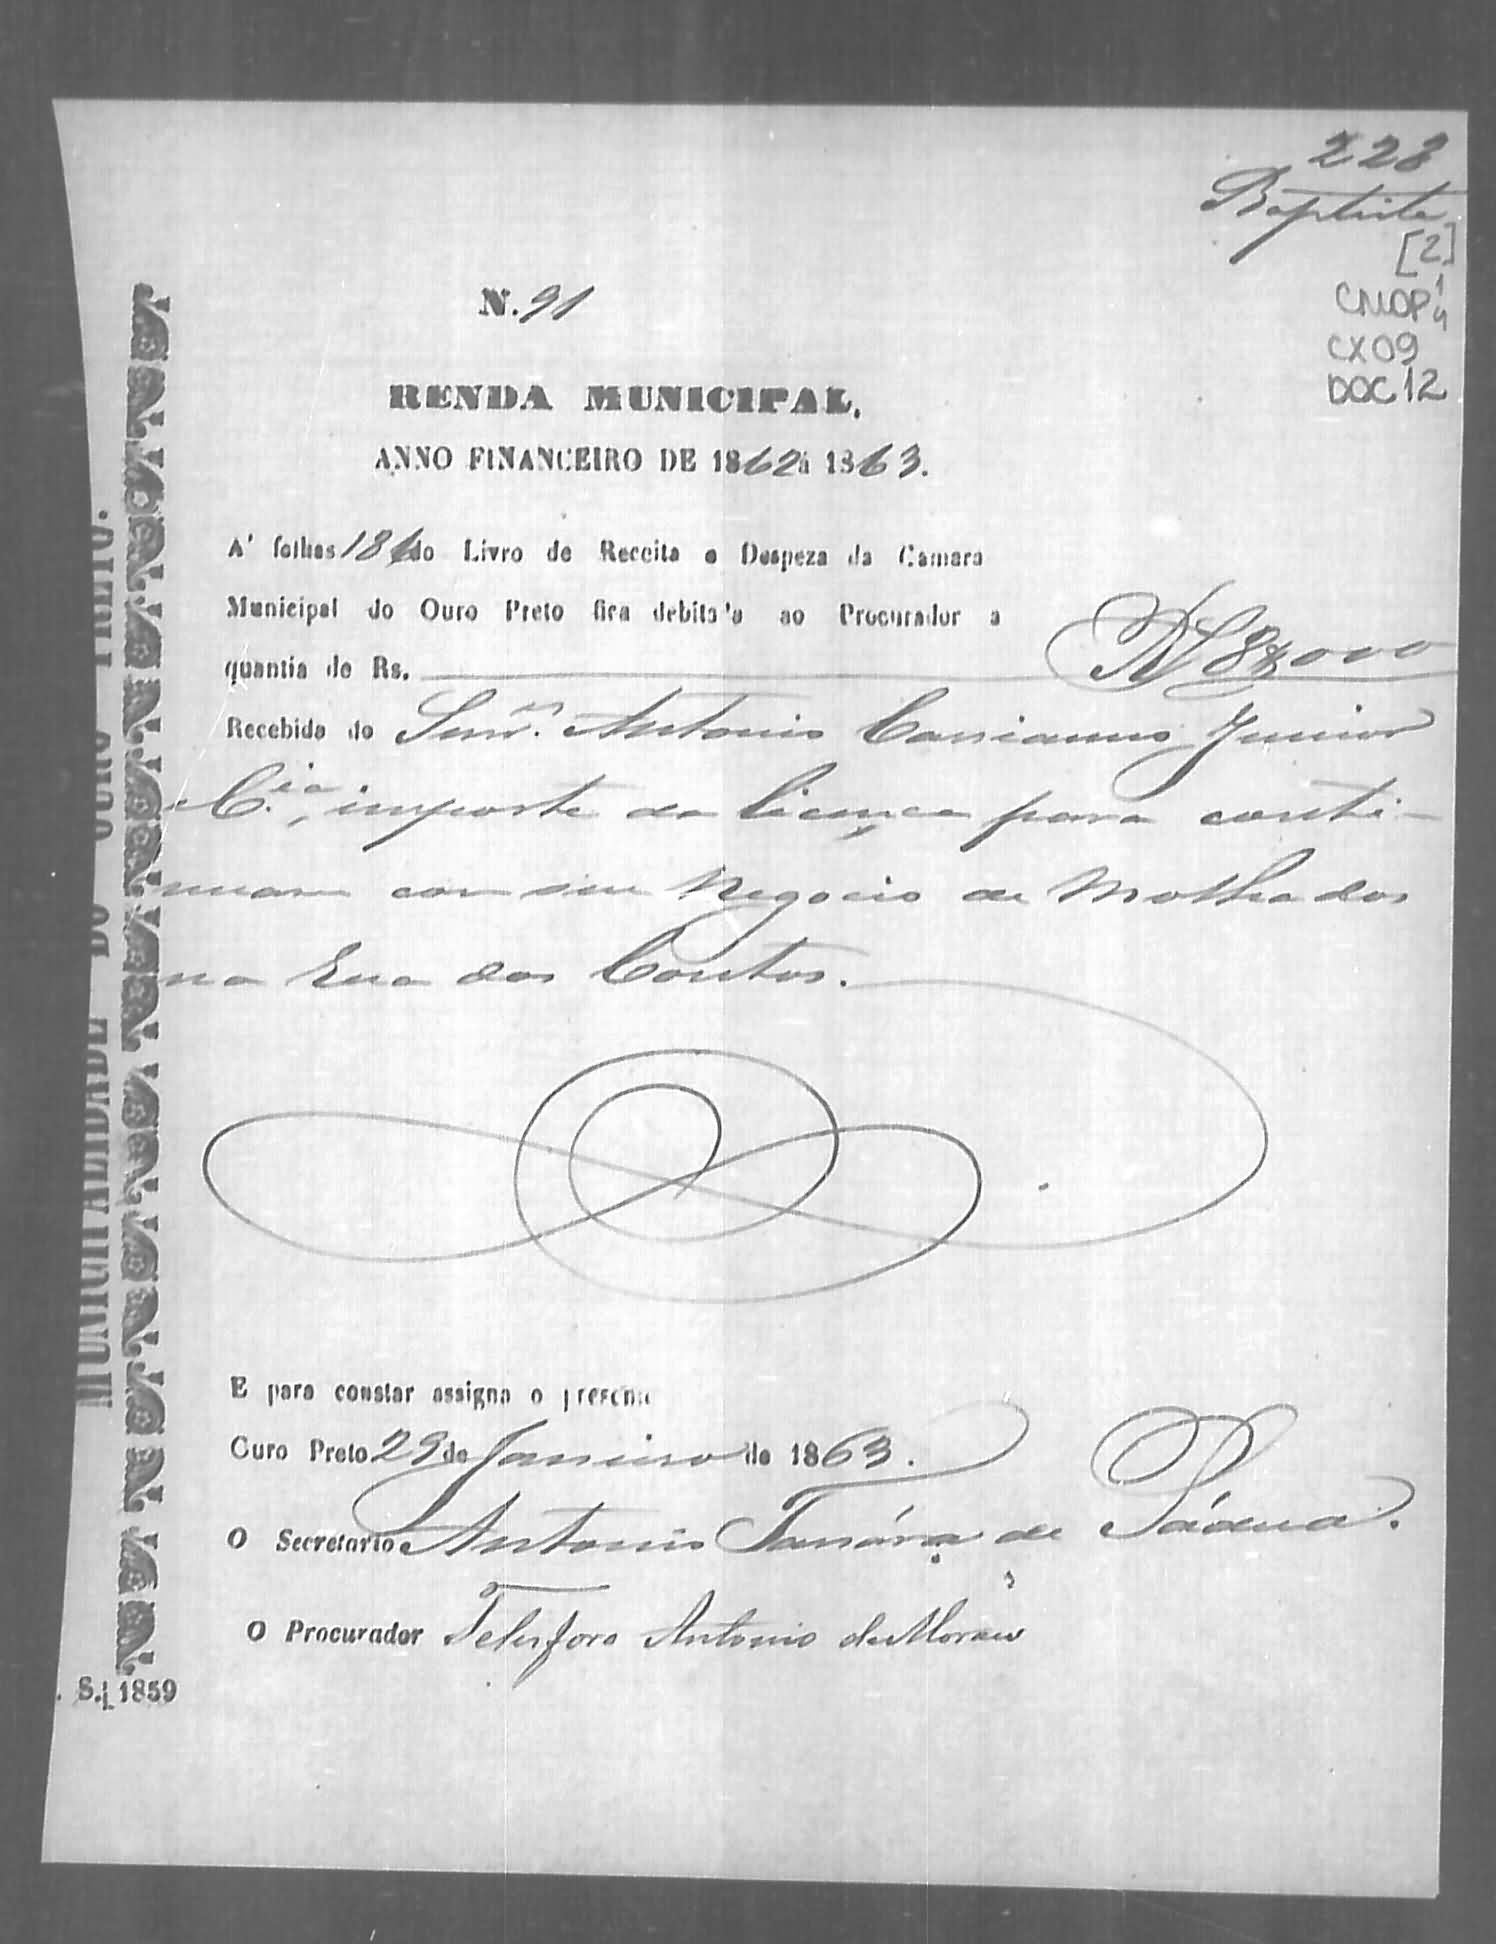 228
Baptista
[2]
CMOP 1/4
CX 09
DOC 12
N. 91
RENDA MUNICIPAL.
ANNO FINANCEIRO DE 1862 á 1863.
A' folhas 186 do Livro de Receita e Despeza da Camara
Municipal do Ouro Preto fica debitado ao Procurador a
quantia de Rs. Rs 8$000
Recebida do Snr. Antonio Cassianno Junior
e C.ia, importe da licença para conti-
nuar com seu Negocio de Molhados
na Rua dos Contos.
E para constar assigna o presente
Ouro Preto 29 de Janeiro de 1863.
O Secretario Antonio de Pádua.
O Procurador Telesforo Antonio de Moraes
MUNICIPALIDADE DO OURO PRETO.
. S. 1859